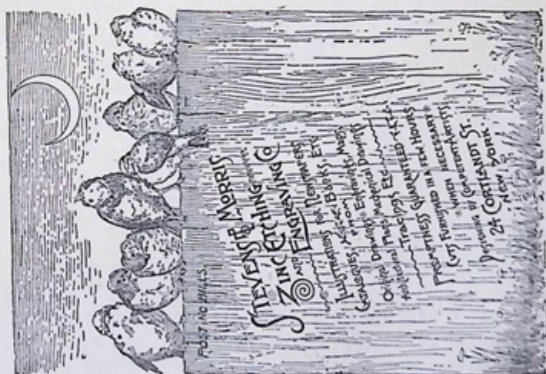 POST NO BILLS.
STEVENS & MORRIS
ZINC ETCHING
AND ENGRAVING CO.
ILLUSTRATIONS FOR NEWSPAPERS
MAGAZINES, BOOKS, ETC.
CATALOGUES, FROM
ORIGINAL DRAWINGS, ENGRAVINGS, MAPS,
ARCHITECTURAL PLANS, MECHANICAL DRAWINGS,
TRACINGS ETC.
PROMPTNESS GUARANTEED
CUTS FURNISHED IN A FEW HOURS
WHEN NECESSARY.
DESIGNING BY COMPETENT ARTISTS.
24 CORTLANDT ST.
NEW YORK.